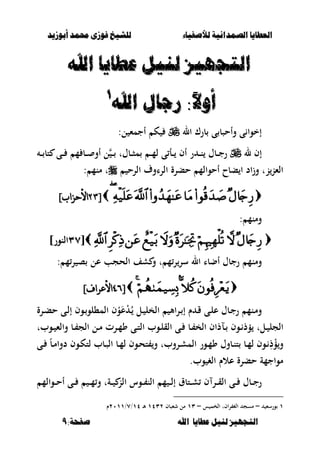 العطايا الصمدانية للأصفياء للشيخ فوزى محمد أبوزيد
التجهيز لنيل عطايا الله
أولاً: رجال الله١
إخوانى وأحبابى بارك الله ﷻ فيكم أجمعين:
إن لله ﷻ رجال يندر أن يأتى لهم بمثال، بيَّن أوصافهم فى كتابه
العزيز، وزاد ايضاح أحوالهم حضرة الرءوف الرحيم ﷺ، منهم:
﴿ رِجَالٌ صَدَقُوا۟ مَا عَـٰهَدُوا۟ ٱللَّهَ عَلَيْهِ ۖ ﴾ [٢٣الأحزاب]
ومنهم:
﴿ رِجَالٌ لَّا تُلْهِيهِمْ تِجَـٰرَةٌ وَلَا بَيْعٌ عَن ذِكْرِ ٱللَّهِ ﴾ [٣٧النور]
ومنهم رجال أضاء الله سريرتهم، وكشف الحجب عن بصيرتهم:
﴿ يَعْرِفُونَ كُلًّۢا بِسِيمَىٰهُمْ ۚ ﴾ [٤٦الأعراف]
ومنهم رجال على قدم إبراهيم الخليل يُدْعَوْن المطلوبون إلى حضرة
الجليل، يؤذنون بآذان الخفا فى القلوب التى طهرت من الجفا والعيوب،
ويؤْذنون لها بتناول طهور المشروب، ويفتحون لها الباب لتكون دواماً فى
مواجهة حضرة علام الغيوب.
رجال فى القرآن تشتاق إليهم النفوس الزكية، وتهيم فى أحوالهم
١ بورسعيد – مسجد الغفران، الخميس – ١٣ من شعبان ١٤٣٢ هـ ٢٠١١/٧/١٤م
التجهيز لنيل عطايا الله صفحة:٩